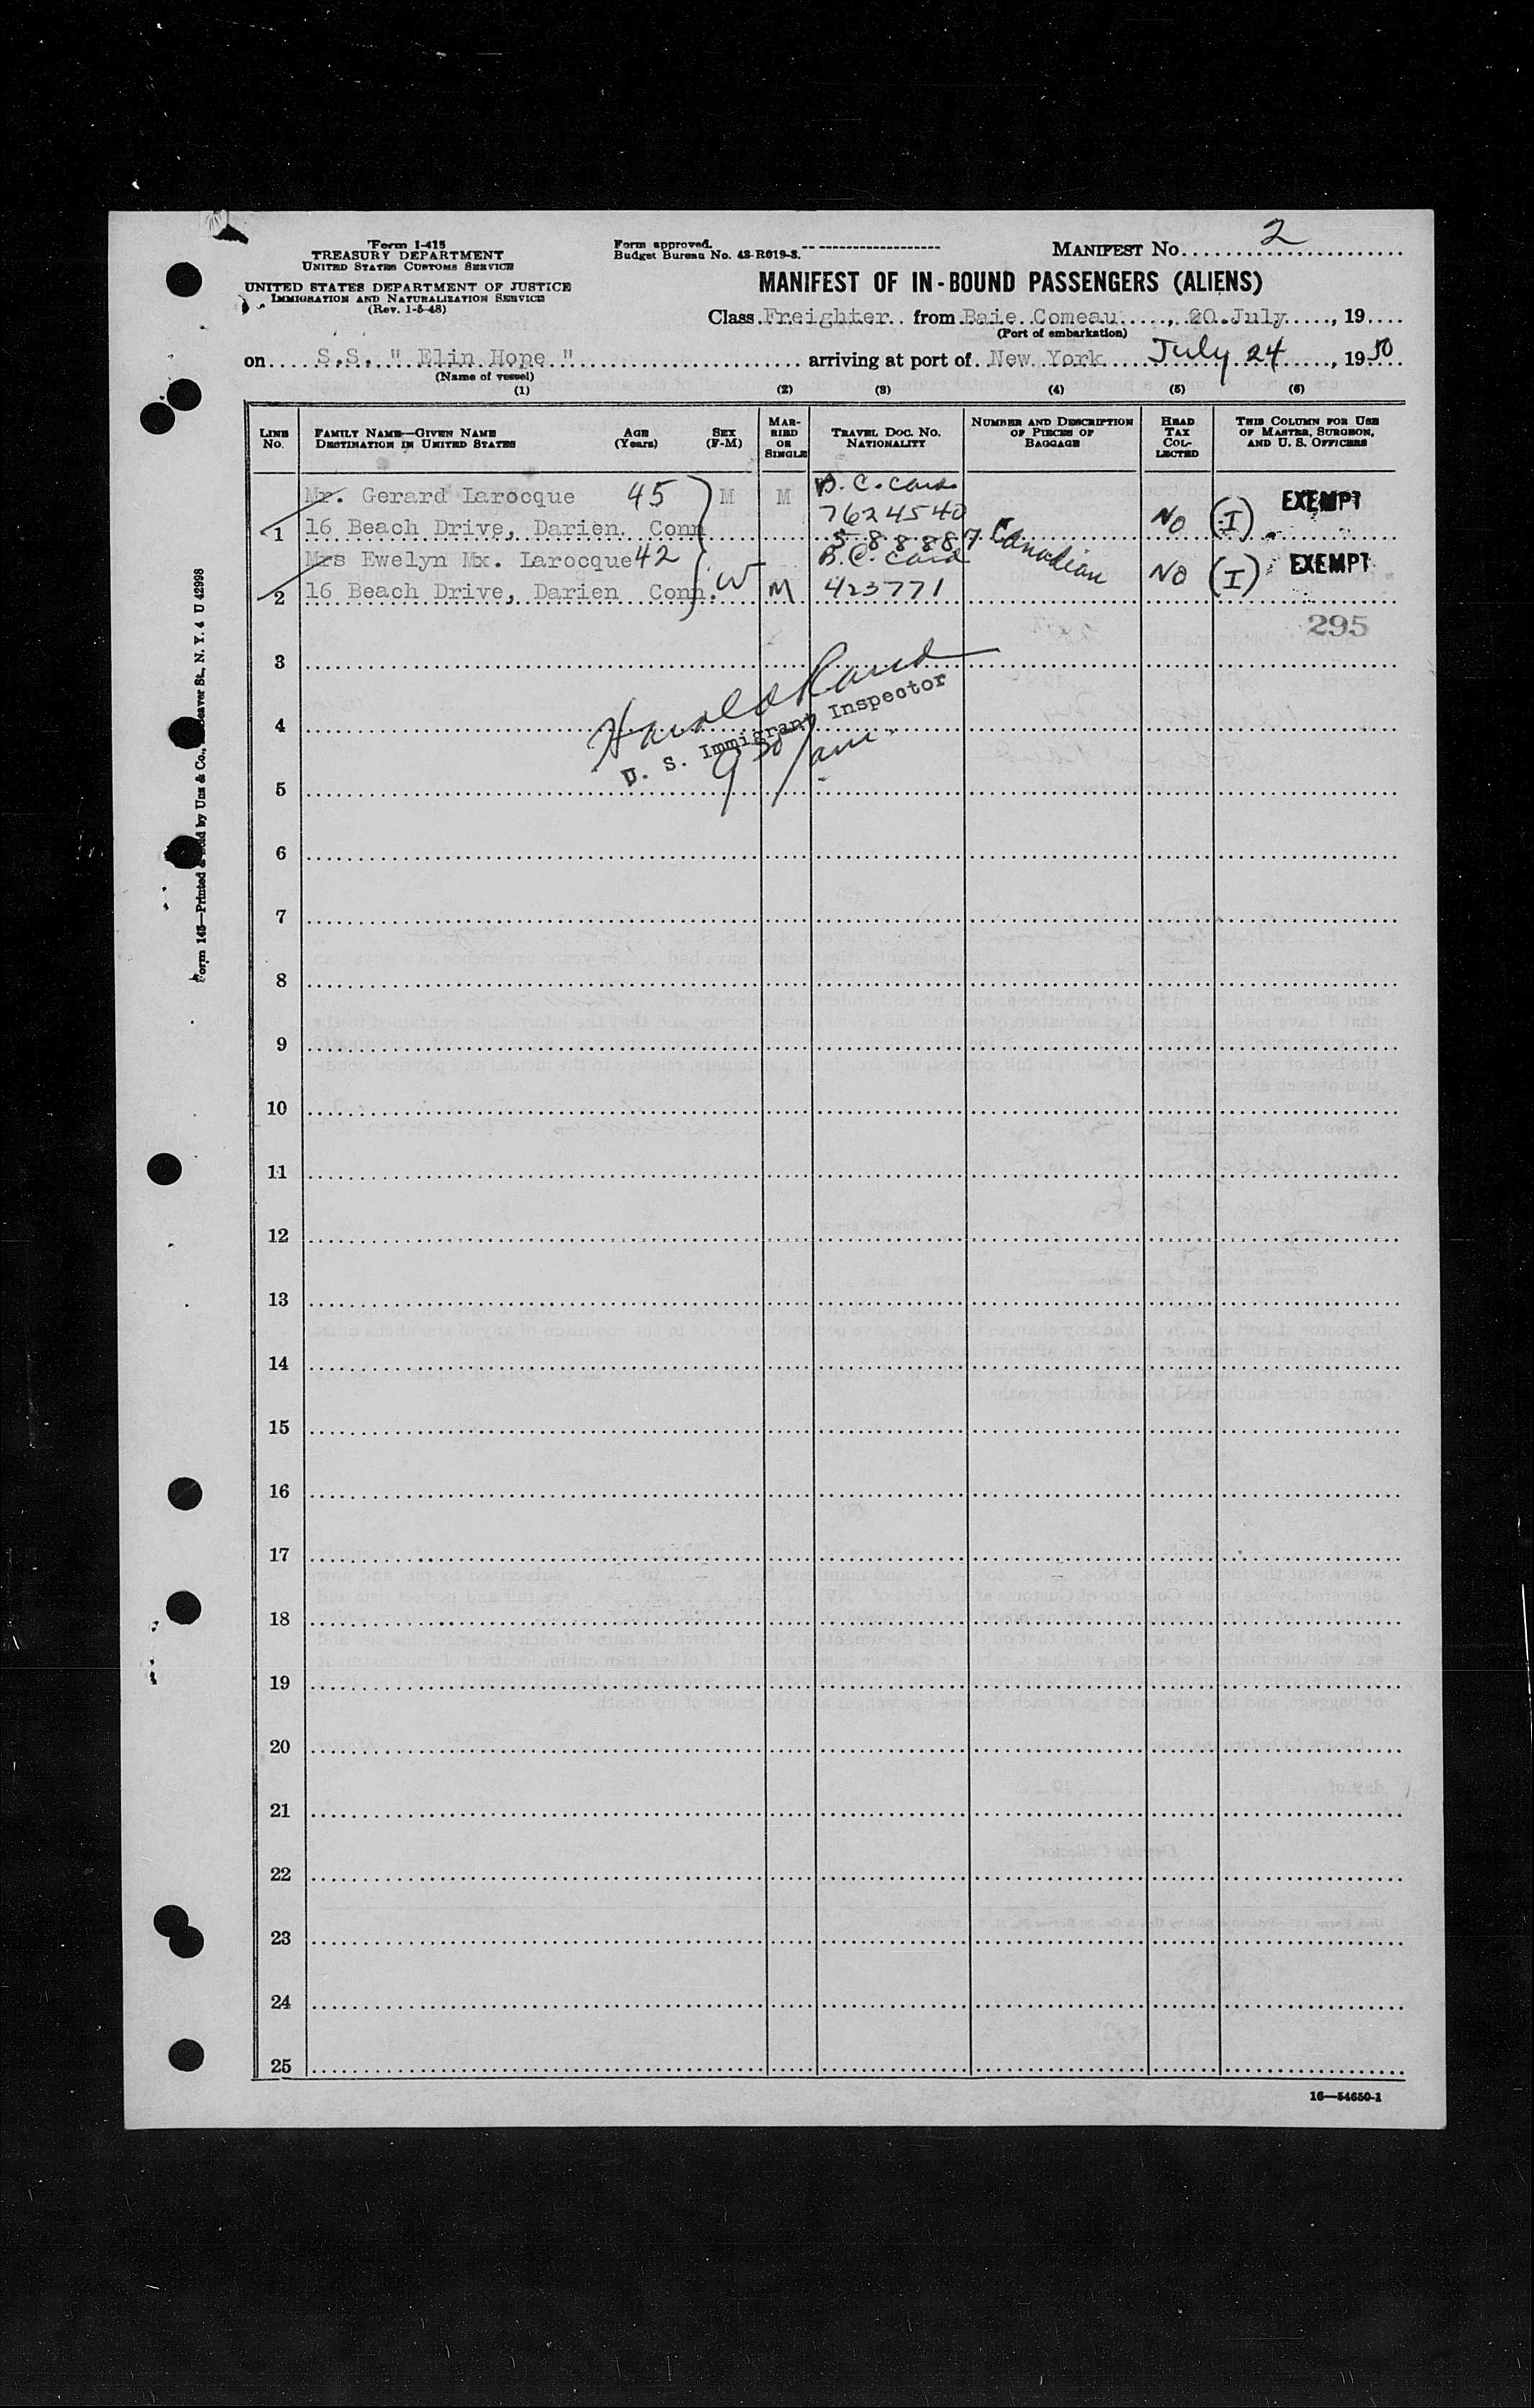 Form I-415
TREASURY DEPARTMENT
UNITED STATES CUSTOMS SERVICE
UNITED STATES DEPARTMENT OF JUSTICE
IMMIGRATION AND NATURALIZATION SERVICE
(Rev. 1-5-48)
Form approved.
Budget Bureau No. 43-R019-3.
MANIFEST No. 2
MANIFEST OF IN-BOUND PASSENGERS (ALIENS)
Class Freighter from Baie Comeau, 20 July, 19
(Port of embarkation)
on S.S. " Elin Hope " arriving at port of New York July 24, 1950
(Name of vessel)
(1) (2) (3) (4) (5) (6)
LINE No. FAMILY NAME—GIVEN NAME DESTINATION IN UNITED STATES AGE (Years) SEX (F-M) MARRIED OR SINGLE TRAVEL DOC. NO. NATIONALITY NUMBER AND DESCRIPTION OF PIECES OF BAGGAGE HEAD TAX COLLECTED THIS COLUMN FOR USE OF MASTER, SURGEON, AND U. S. OFFICERS
Mr. Gerard Larocque 45 M M B.C. Card
7624540 EXEMPT
1 16 Beach Drive, Darien. Conn 58887 Canadian No (I)
Mrs Ewelyn Mx. Larocque 42 B.C. Card No (I) EXEMPT
2 16 Beach Drive, Darien Conn. W M 423771
295
3
Harold Rand
4
U. S. Immigrant Inspector
930 am
5
6
7
8
9
10
11
12
13
14
15
16
17
18
19
20
21
22
23
24
25
16—54650-1
Form 145—Printed & Sold by Unz & Co., Beaver St., N. Y. 4 U 42998